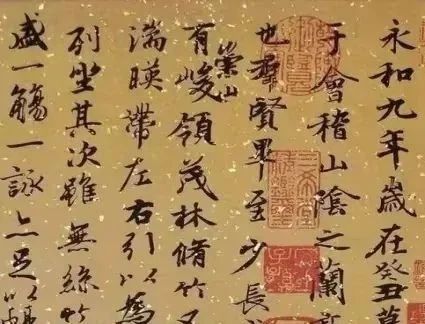 永和九年歲在癸丑暮
于會稽山陰之蘭亭
也羣賢畢至少長
崇山
有峻領茂林脩竹又
湍暎帶左右引以為
列坐其次雖無絲竹
盛一觴一詠亦足以暢
三希堂